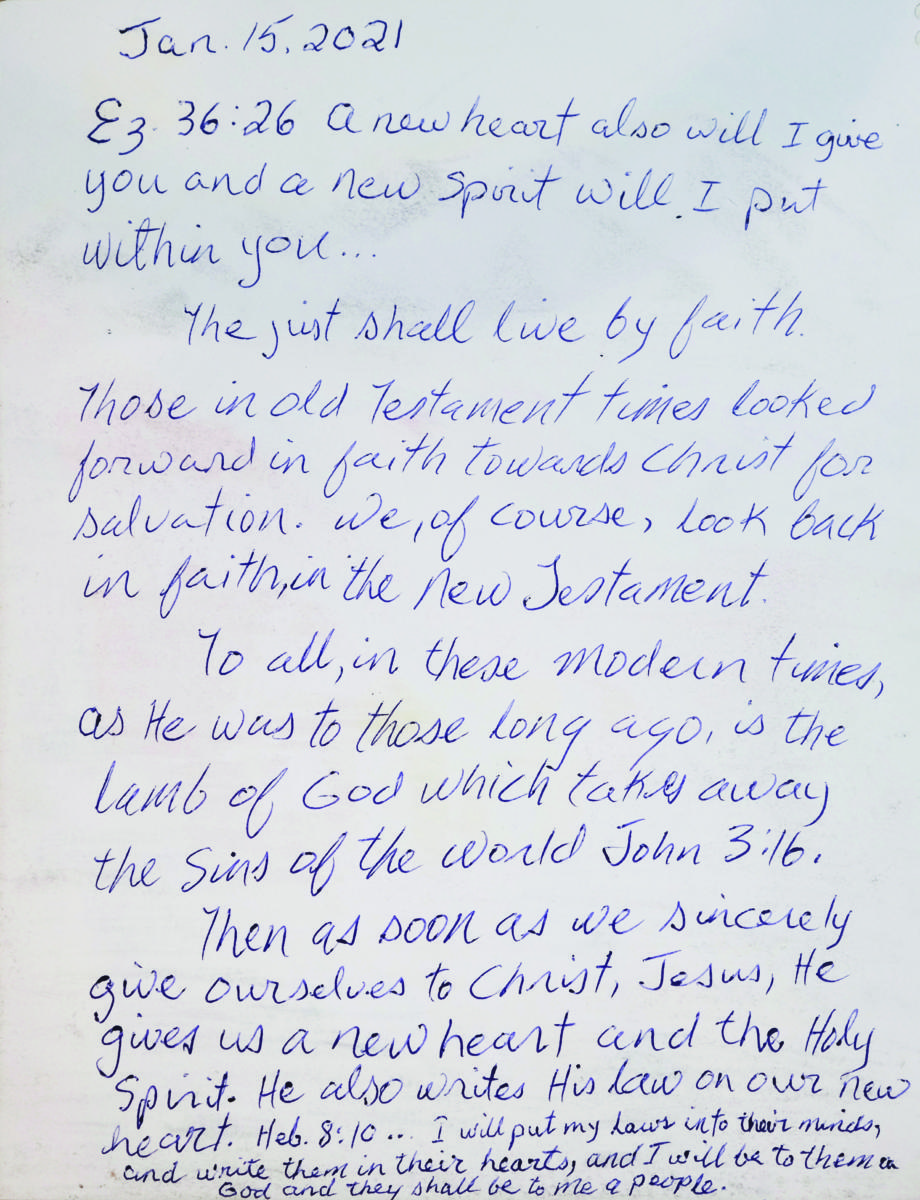 Jan. 15, 2021
Ez. 36:26 A new heart also will I give
you and a new Spirit will I put
within you...
The just shall live by faith.
Those in old Testament times looked
forward in faith towards Christ for
salvation. We, of course, look back
in faith, in the New Testament.
To all, in these modern times,
as He was to those long ago, is the
lamb of God which takes away
the Sins of the world John 3:16.
Then as soon as we sincerely
give ourselves to Christ, Jesus, He
gives us a new heart and the Holy
Spirit. He also writes His law on our new
heart. Heb. 8:10... I will put my laws into their minds,
and write them in their hearts, and I will be to them a
God and they shall be to me a people.